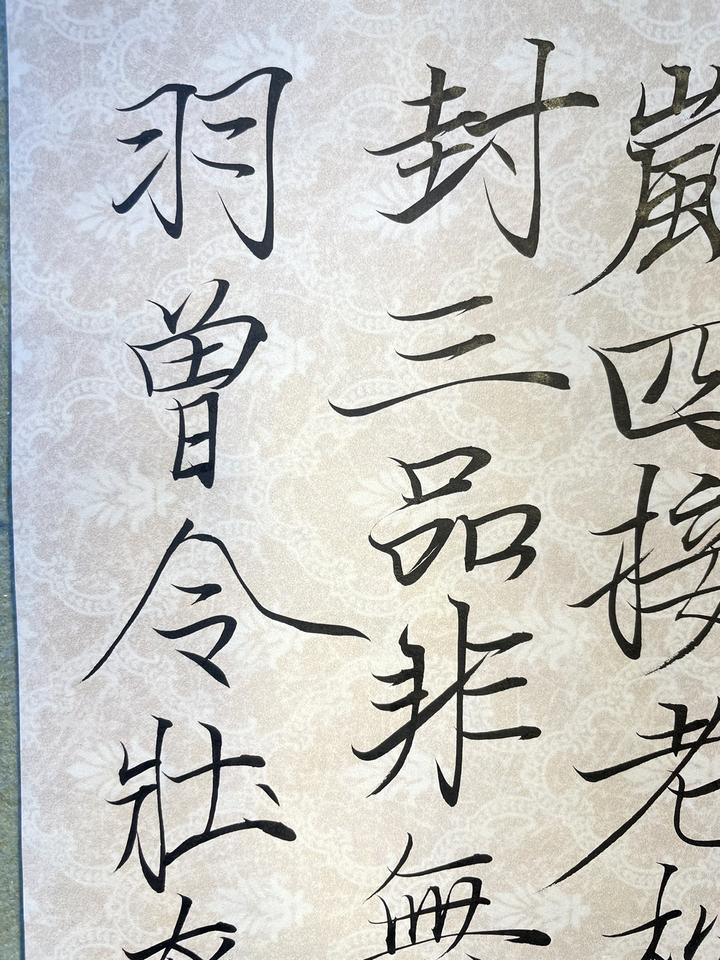 四接老
封三品非無
羽曾令壯